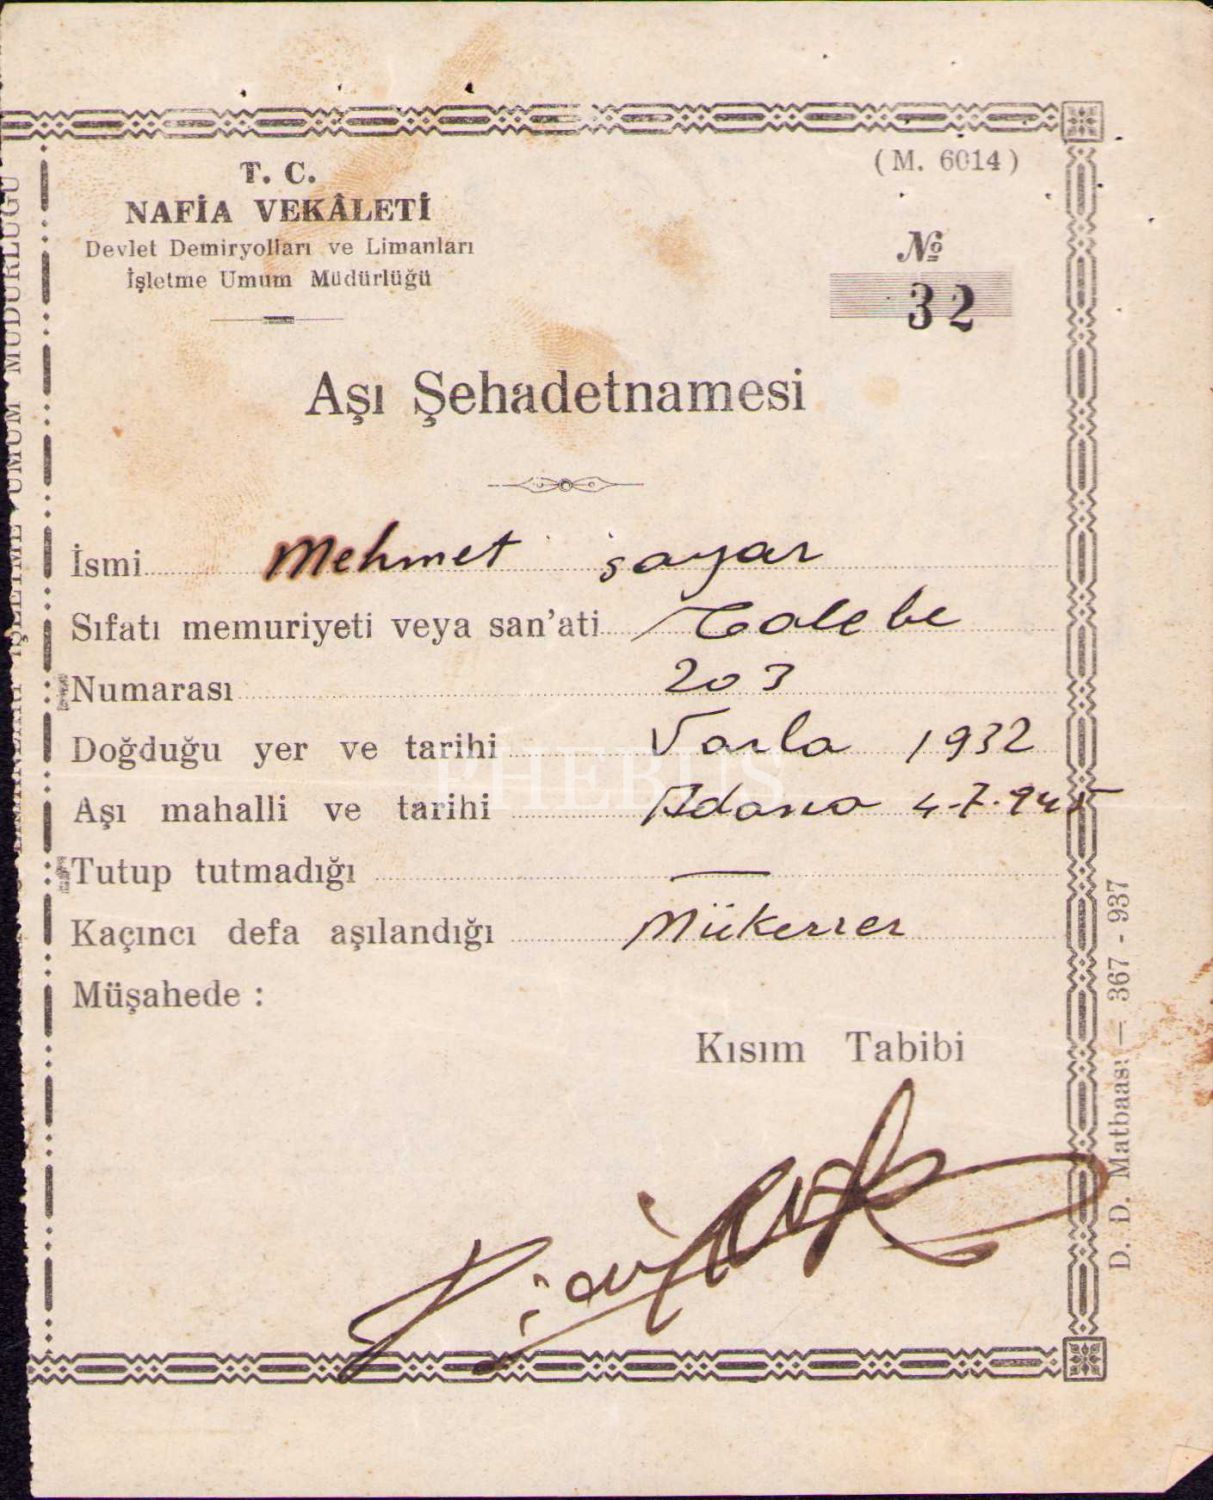 T. C.
NAFİA VEKÂLETİ
Devlet Demiryolları ve Limanları
İşletme Umum Müdürlüğü
(M. 6014)
№
32
Aşı Şehadetnamesi
İsmi Mehmet Şayar
Sıfatı memuriyeti veya san'ati Talebe
Numarası 203
Doğduğu yer ve tarihi Varla 1932
Aşı mahalli ve tarihi Adana 4-7-945
Tutup tutmadığı —
Kaçıncı defa aşılandığı Mükerrer
Müşahede :
Kısım Tabibi
D. D. Matbaası — 367 - 937
İŞLETME UMUM MÜDÜRLÜĞÜ
PHEBUS